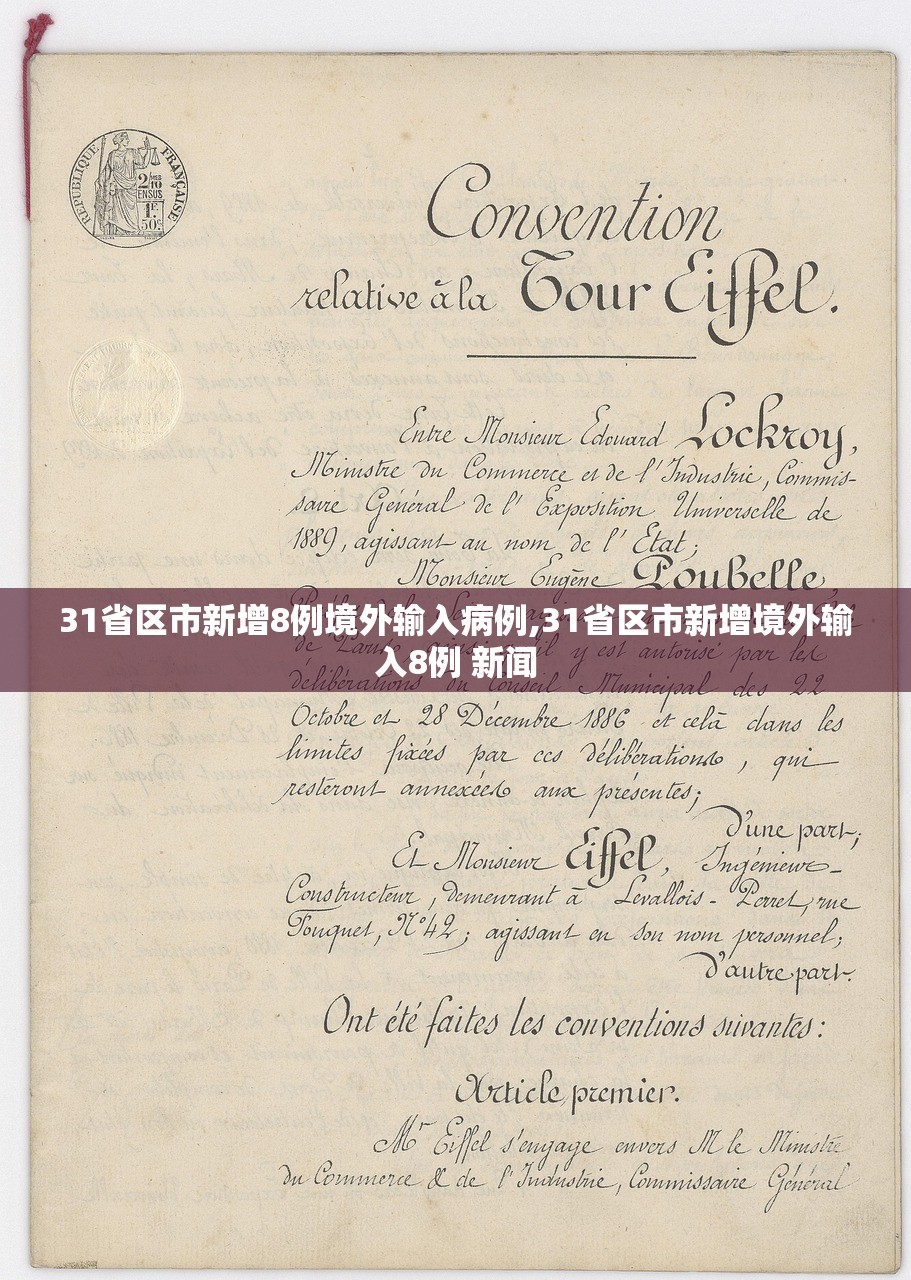 RÉPUBLIQUE FRANÇAISE
2/10
EN SUS
1F.
50c
Convention
relative à la Tour Eiffel.
Entre Monsieur Edouard Lockroy,
Ministre du Commerce et de l'Industrie, Commis-
saire Général de l'Exposition Universelle de
1889, agissant au nom de l'Etat;
Monsieur Eugène Poubelle,
31省区市新增8例境外输入病例,31省区市新增境外输
入8例 新闻
de Paris, y est autorisé par les
délibérations du Conseil Municipal des 22
Octobre et 28 Décembre 1886 et celà dans les
limites fixées par ces délibérations, qui
resteront annexées aux présentes;
d'une part;
Et Monsieur Eiffel, Ingénieur-
Constructeur, demeurant à Levallois-Perret, rue
Fouquet, N°42; agissant en son nom personnel;
d'autre part.
Ont été faites les conventions suivantes:
Article premier.
Mr Eiffel s'engage envers M le Ministre
du Commerce & de l'Industrie, Commissaire Général